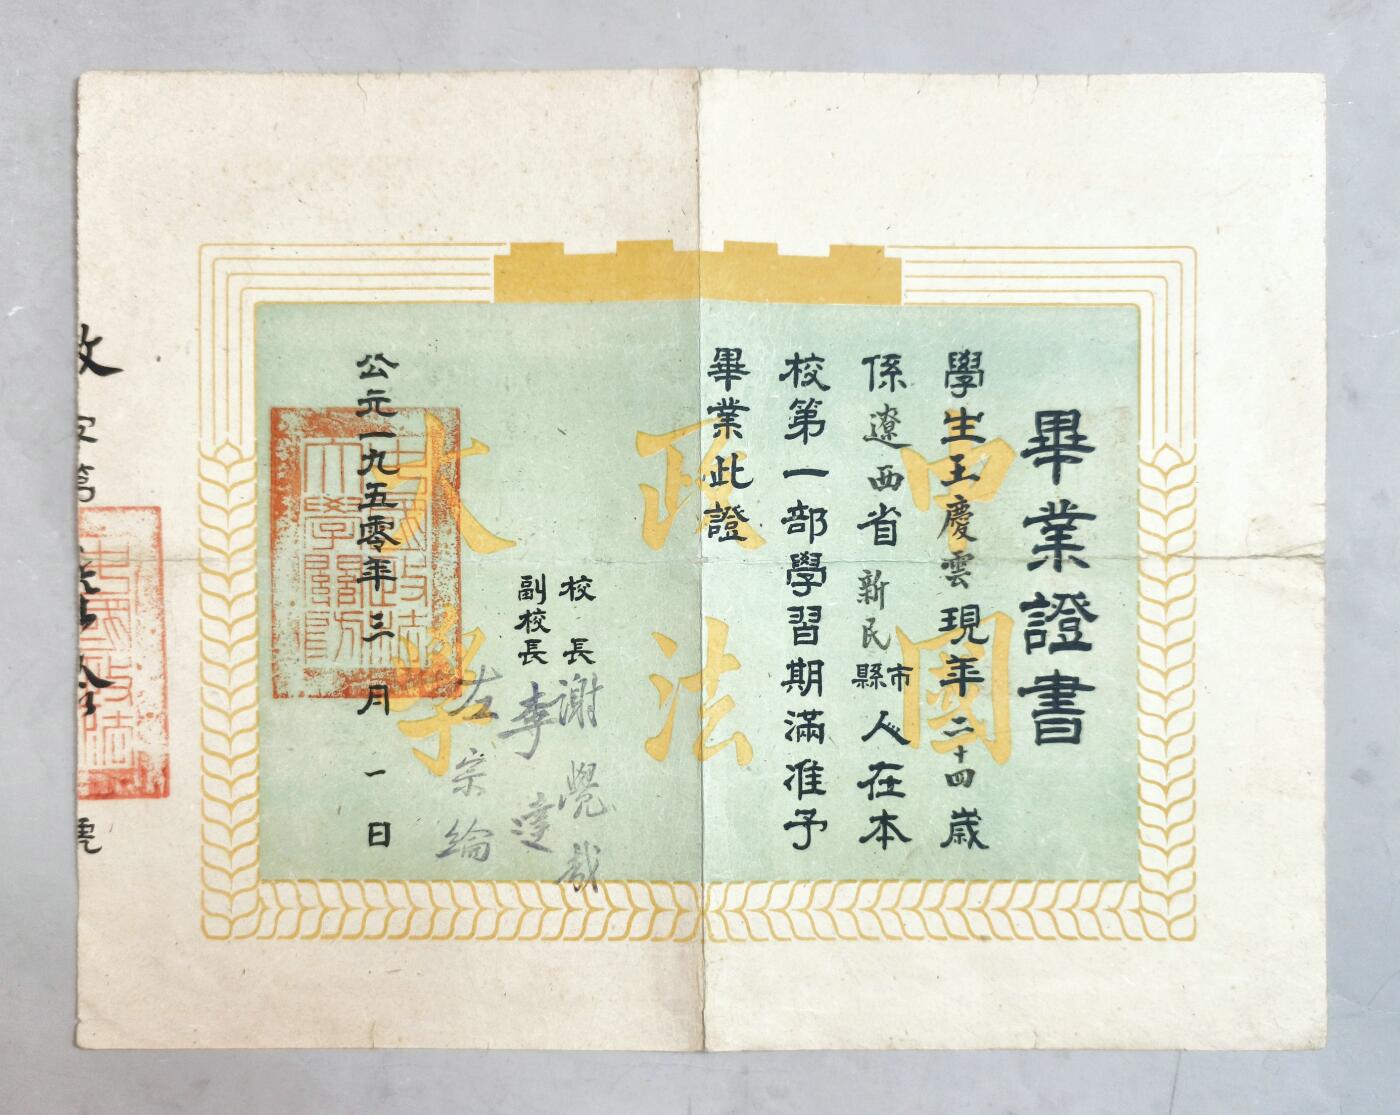 畢業證書
學生王慶雲現年二十四歲
係遼西省新民縣市人在本
校第一部學習期滿准予
畢業此證
校長謝覺哉
副校長李達
左宗綸
公元一九五零年三月一日
中國
政法
大學
中國政法
大學關防
字第
號